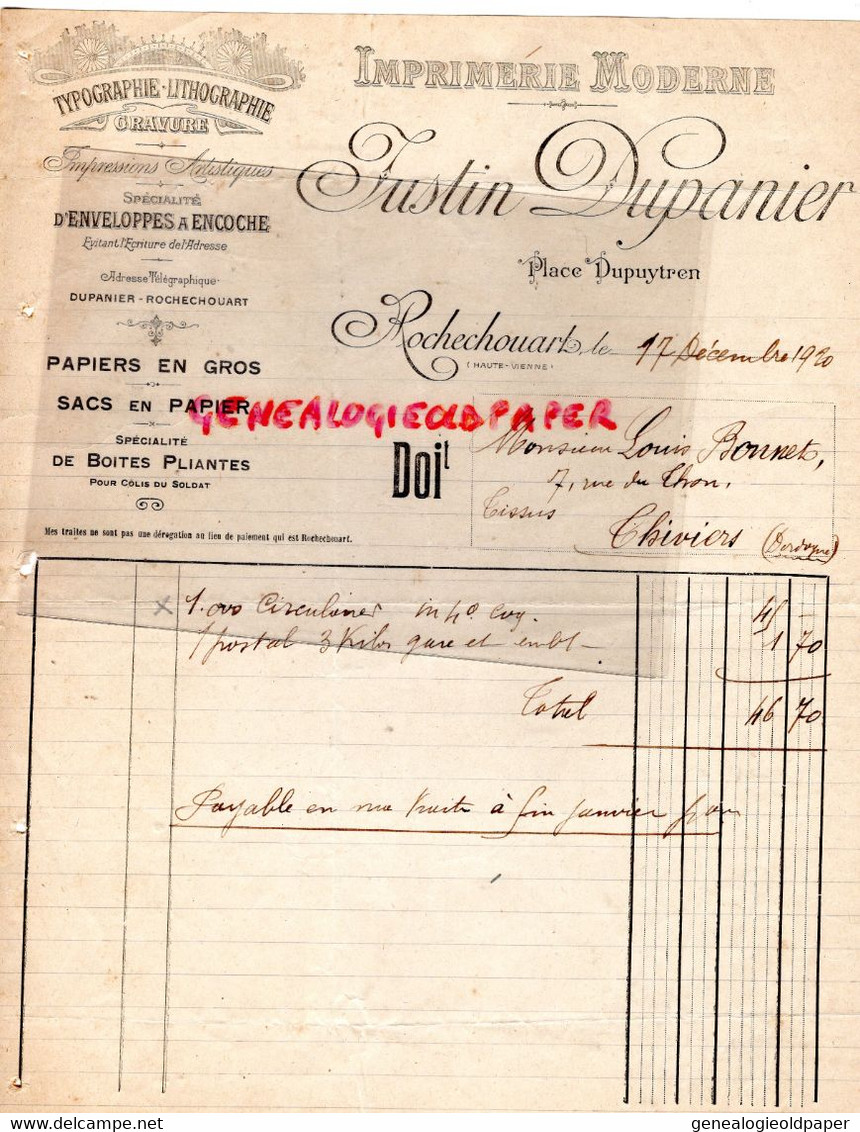 TYPOGRAPHIE - LITHOGRAPHIE
GRAVURE
Impressions Artistiques
SPÉCIALITÉ
D'ENVELOPPES A ENCOCHE
Evitant l'Ecriture de l'Adresse
Adresse Télégraphique
DUPANIER - ROCHECHOUART
PAPIERS EN GROS
SACS EN PAPIER
SPÉCIALITÉ
DE BOITES PLIANTES
POUR COLIS DU SOLDAT
Mes traites ne sont pas une dérogation au lieu de paiement qui est Rochechouart.
IMPRIMERIE MODERNE
Justin Dupanier
Place Dupuytren
Rochechouart, le 17 Décembre 1920
(HAUTE-VIENNE)
GENEALOGIEOLDPAPER
Doit
Monsieur Louis Bonnet,
7, rue du Thon,
Tissus
Thiviers (Dordogne)
1.000 Circulaires in 4°. 45 -
1 postal 3 Kilos gare et embt - 1 70
Total 46 70
Payable en ma traite à fin Janvier
delcampe.net
genealogieoldpaper